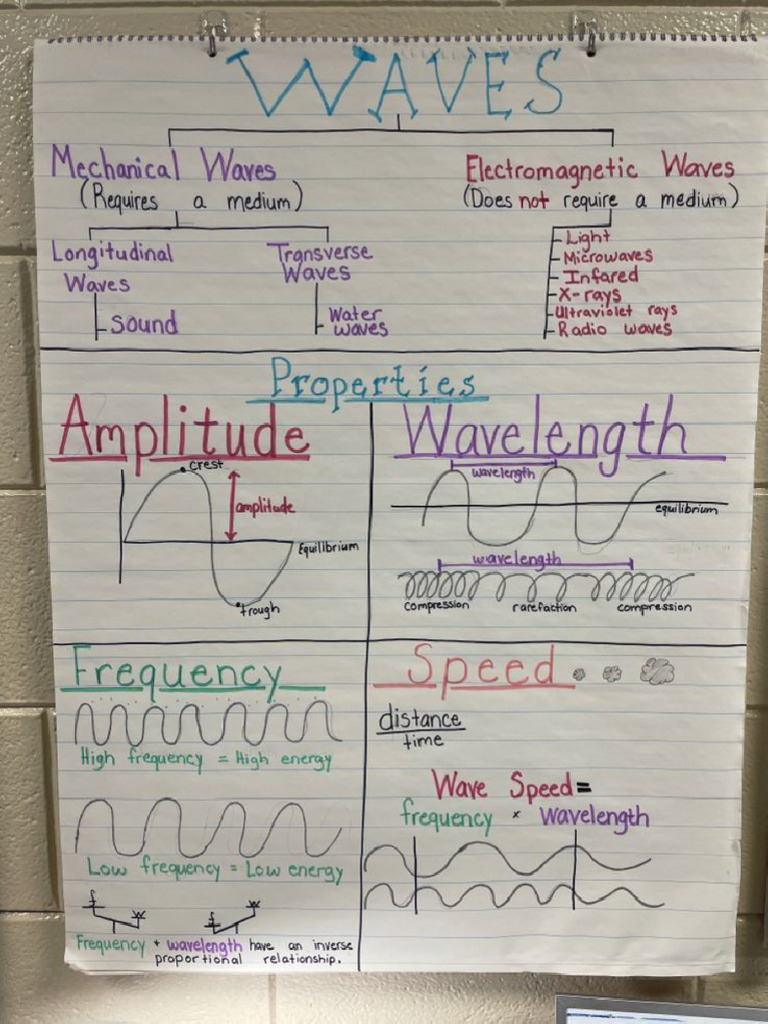 WAVES
Mechanical Waves
(Requires a medium)
Longitudinal
Waves
Sound
Transverse
Waves
Water
waves
Electromagnetic Waves
(Does not require a medium)
Light
Microwaves
Infared
X-rays
Ultraviolet rays
Radio waves
Properties
Amplitude
crest
amplitude
Equilibrium
trough
Wavelength
wavelength
equilibrium
wavelength
compression rarefaction compression
Frequency
High frequency = High energy
Low frequency = Low energy
f w
f w
Frequency + wavelength have an inverse
proportional relationship.
Speed
distance
time
Wave Speed=
frequency × Wavelength